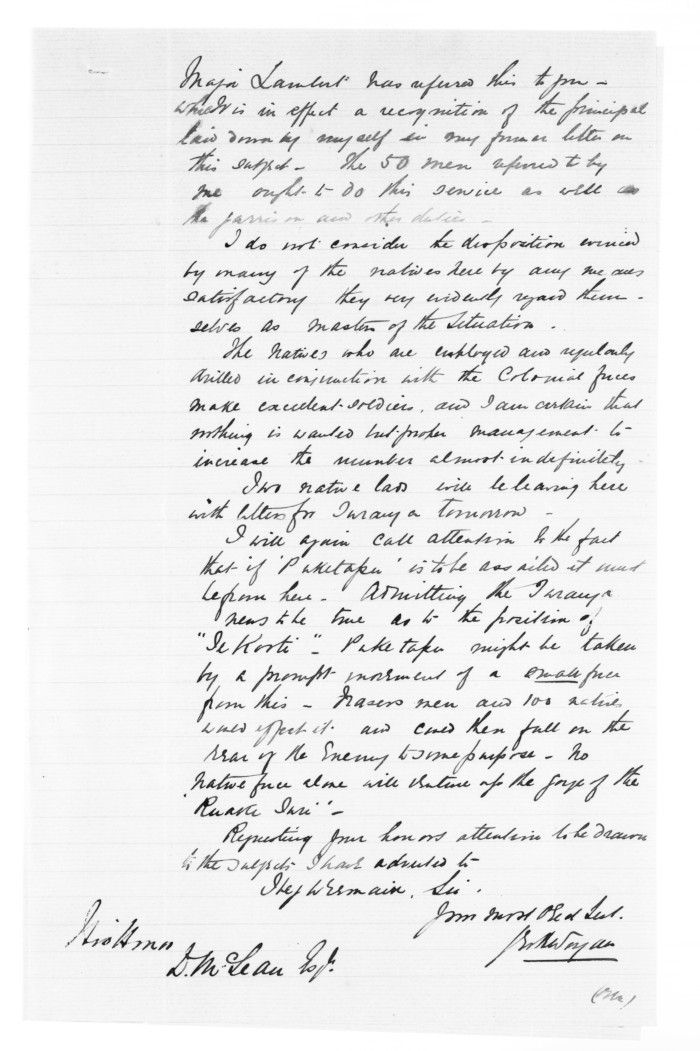 Major Lambert has referred this to you –
which is in effect a recognition of the principal
laid down by myself in my former letter on
this subject – The 50 men referred to by
me ought to do this service as well as
the garrison and other duties –
I do not consider the disposition evinced
by many of the natives here by any means
satisfactory they very evidently regard them-
selves as masters of the situation.
The Natives who are employed and regularly
drilled in conjunction with the Colonial forces
make excellent soldiers, and I am certain that
nothing is wanted but proper management to
increase the number almost indefinitely.
Two native lads will be leaving here
with letters for Turanga tomorrow –
I will again call attention to the fact
that if 'Puketapu' is to be assailed it must
be from here – Admitting the Turanga
news to be true as to the position of
"Te Kooti" – Puketapu might be taken
by a prompt movement of a small force
from this – Frasers men and 100 natives
would effect it and could then fall on the
rear of the Enemy to some purpose – No
Native force alone will venture up the gorge of the
'Ruake Ture' –
Requesting your honors attention to be drawn
to the subjects I have adverted to
I beg to remain, Sir.
Your most Obed Sert.
His Honor
D. McLean Esqr.
(Over)